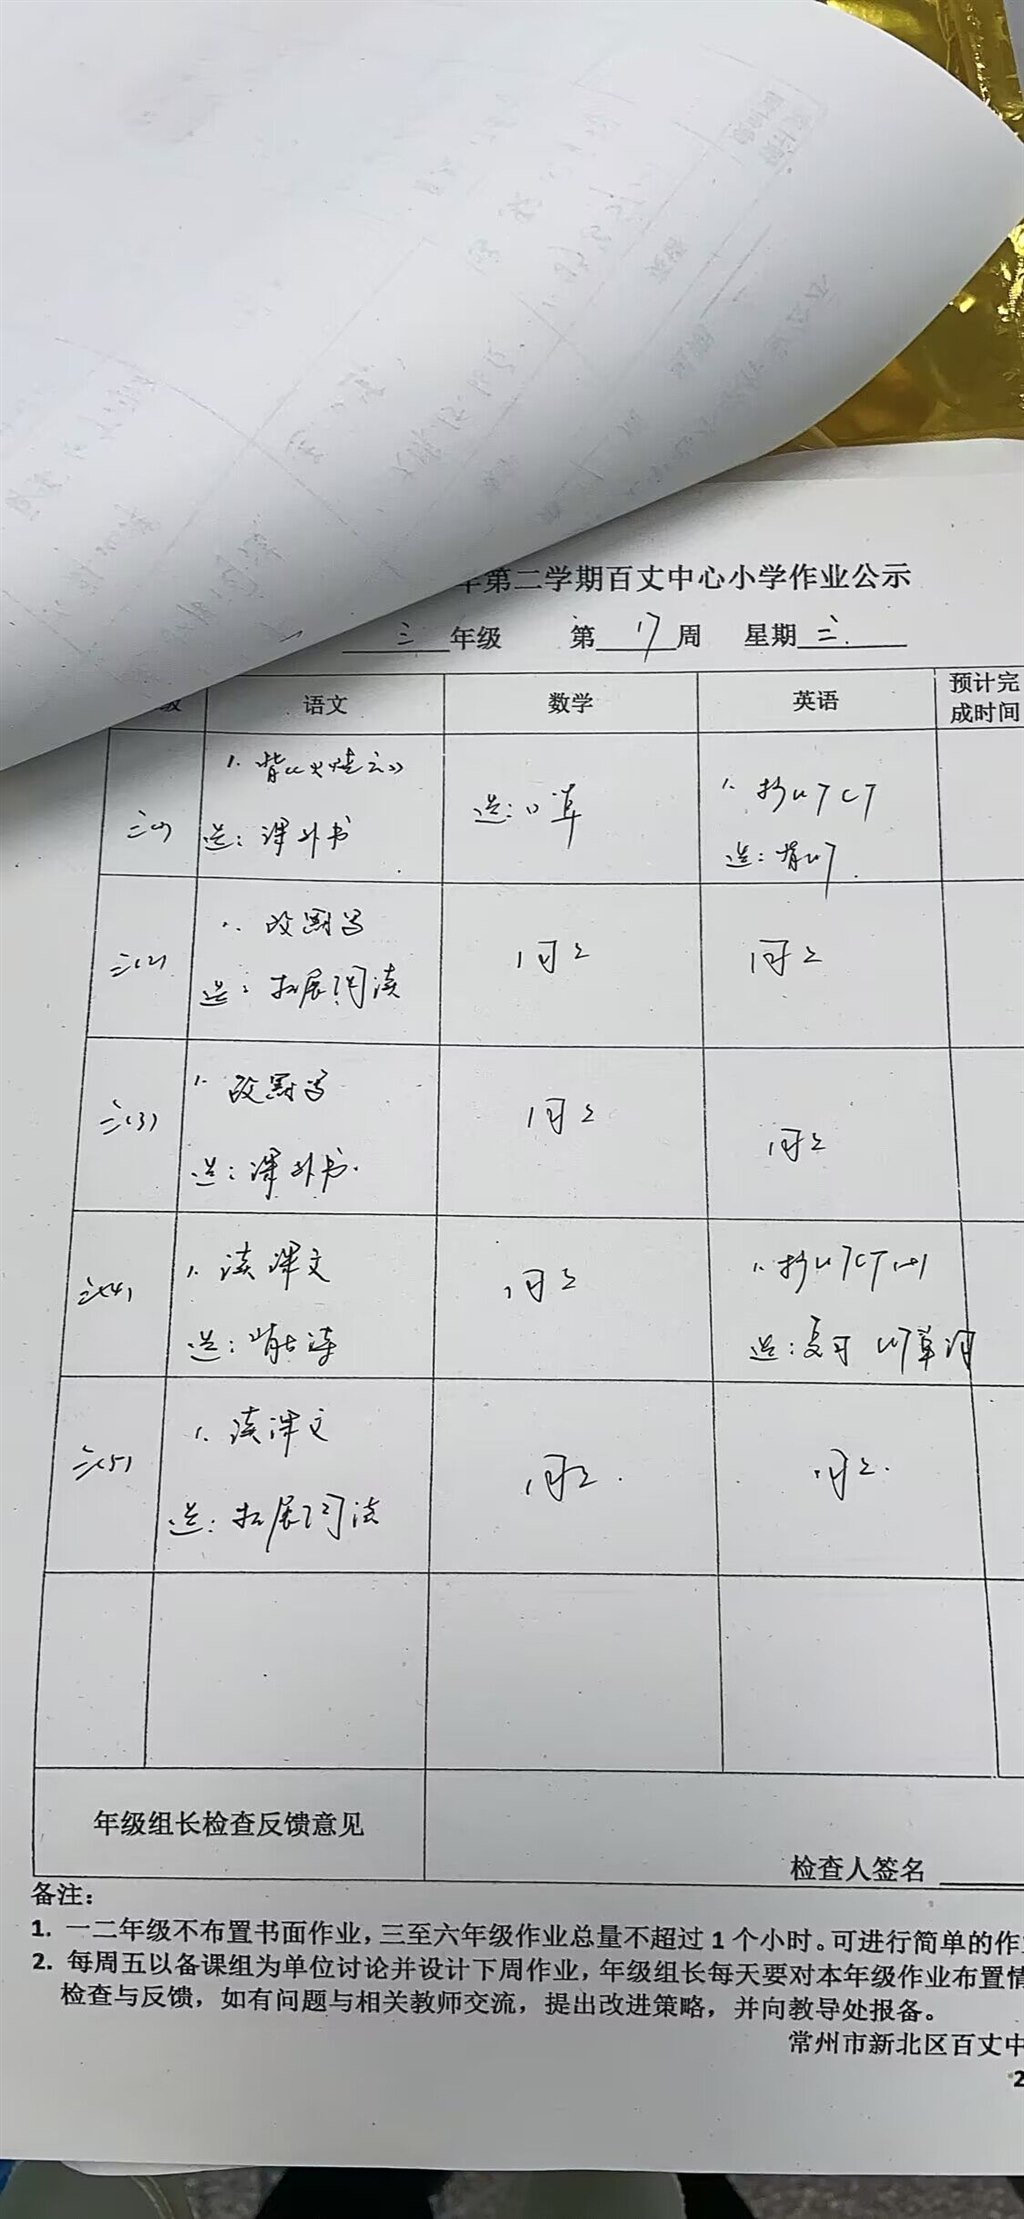 年第二学期百丈中心小学作业公示
三年级 第17周 星期三
级 语文 数学 英语 预计完成时间
三(1)
1. 背《火烧云》
选:课外书
选:口算
1. 抄U7 C7
选:背U7
三(2)
1. 改默写
选:拓展阅读
同上
同上
三(3)
1. 改默写
选:课外书.
同上
同上
三(4)
1. 读课文
选:背古诗
同上
1. 抄U7C7
选:复习 U7单词
三(5)
1. 读课文
选:拓展阅读
同上.
同上.
年级组长检查反馈意见
检查人签名
备注:
1. 一二年级不布置书面作业,三至六年级作业总量不超过 1 个小时。可进行简单的作
2. 每周五以备课组为单位讨论并设计下周作业,年级组长每天要对本年级作业布置情
检查与反馈,如有问题与相关教师交流,提出改进策略,并向教导处报备。
常州市新北区百丈中
2